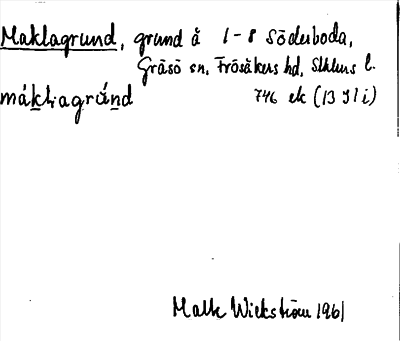 Maklagrund, grund å 1-8 Söderboda,
Gräsö sn, Frösåkers hd, Sthlms l.
746 ek (13 I 1 i)
Malte Wickström 1961